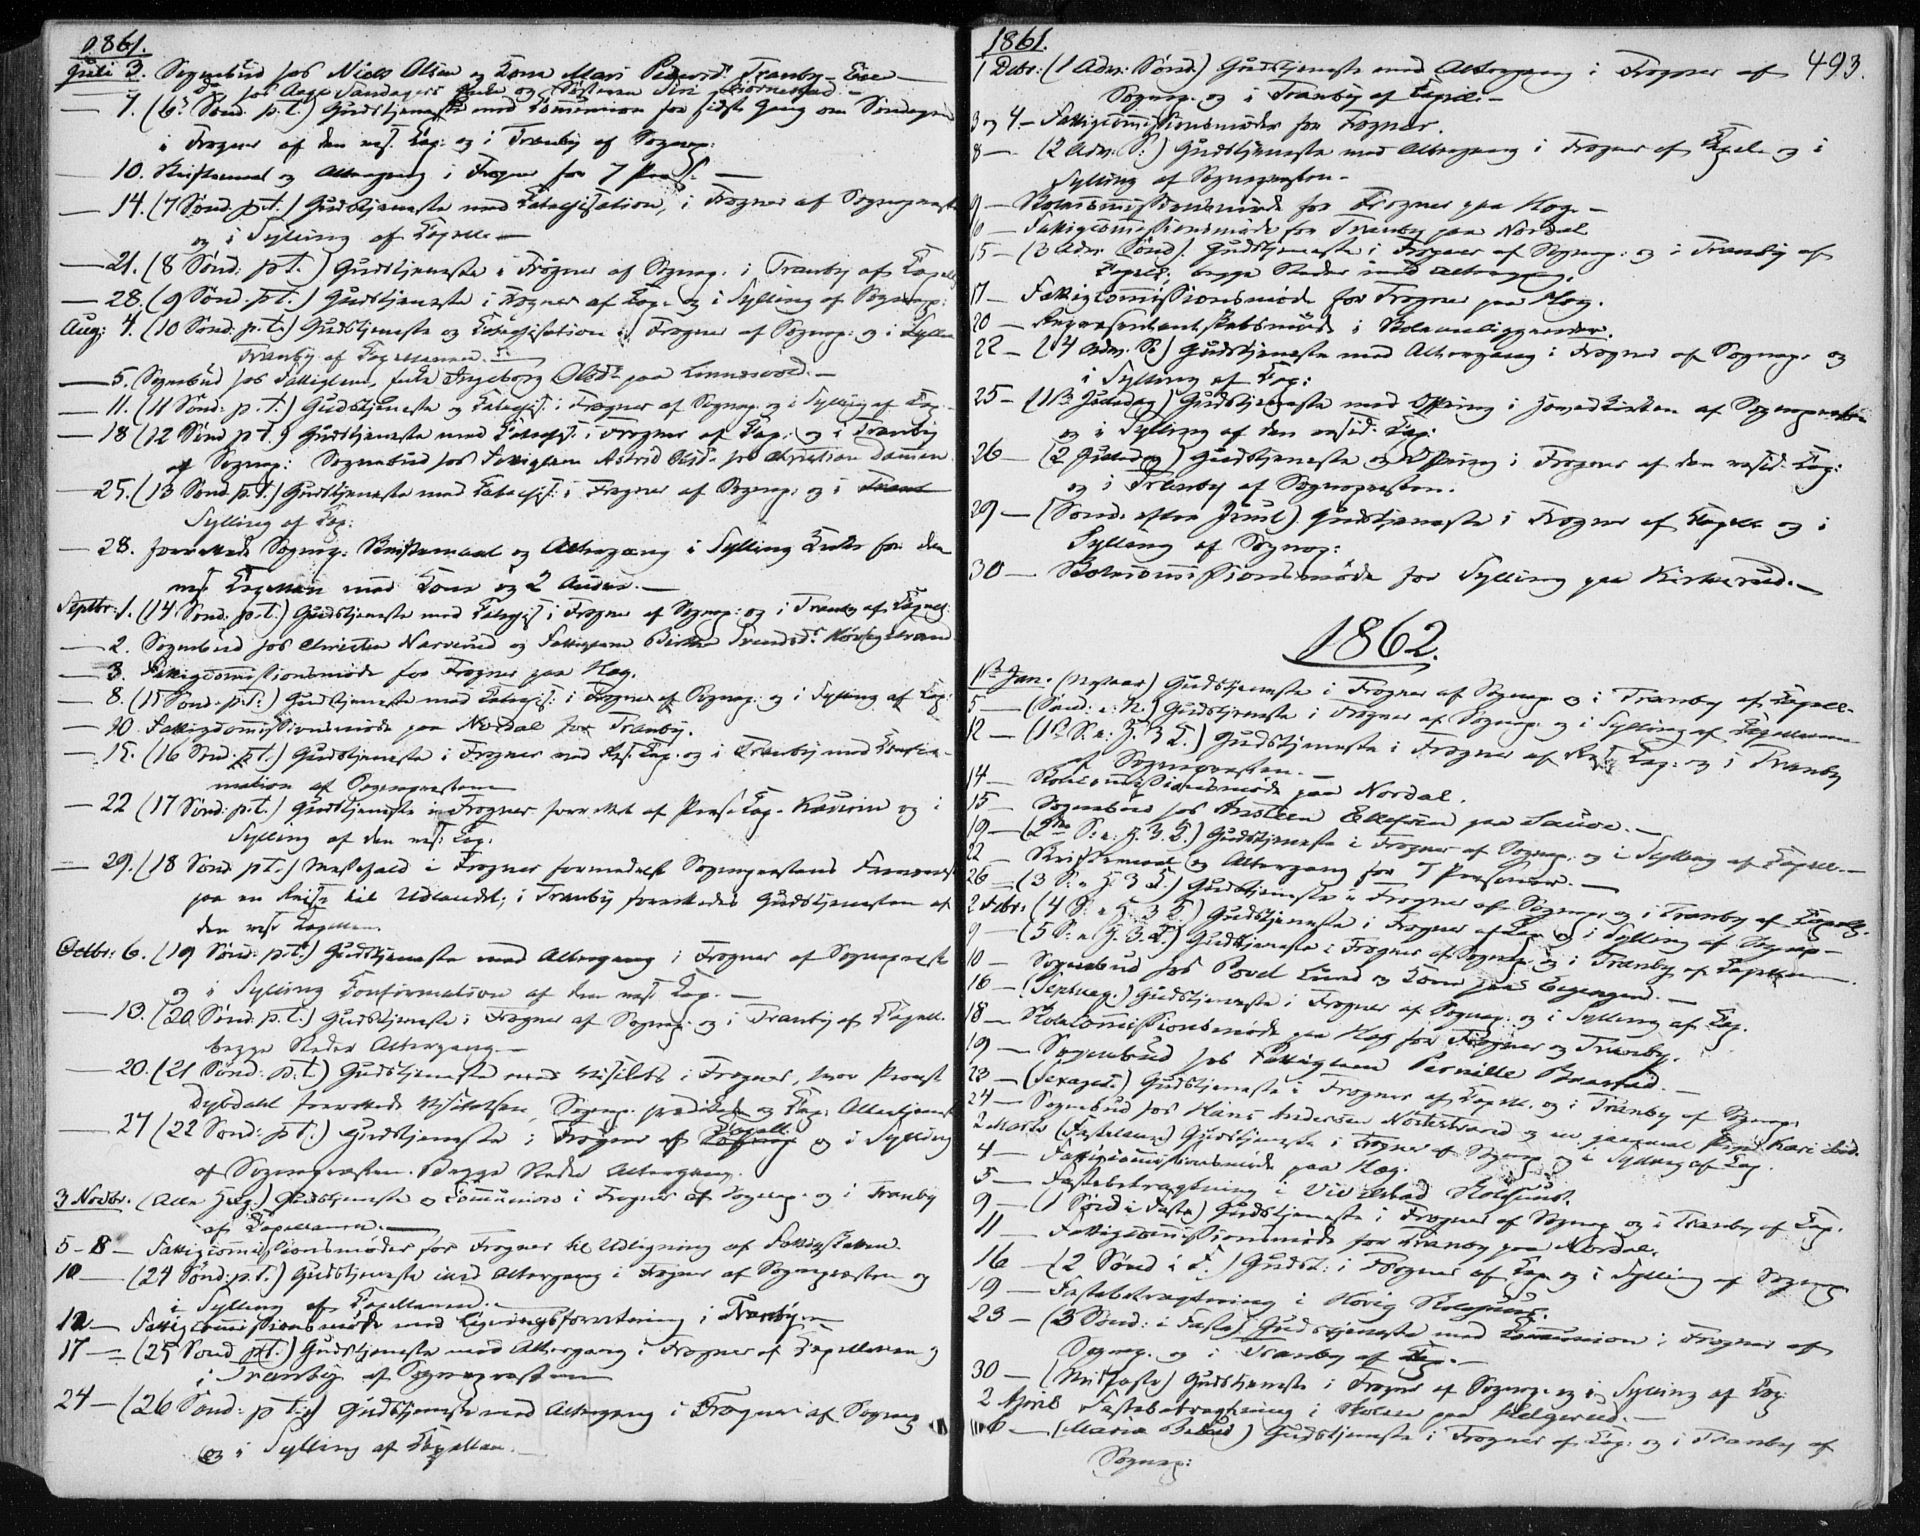 1861.
Juli 3. Sognebud hos Niels Olsen og Kone Mari Pedersd. Tranby-Eie
Do. hos Aage Sandagers Enke og Søsteren Siri Bjørnestad.
— 7. (6te Sønd. p.t.) Gudstjeneste med Communion for sidste Gang om Søndagen
i Frogner af den res. Cap: og i Tranby af Sognep:
— 10. Skriftemaal og Altergang i Frogner for 7 Pers. —
— 14. (7 Sønd. p.t.) Gudstjeneste med Catechisation, i Frogner af Sognepræsten
og i Sylling af Capell. —
— 21. (8 Sønd: p.t.) Gudstjeneste i Frogner af Sognep. i Tranby af Capell
— 28. (9 Sønd. p.t.) Gudstjeneste i Frogner af Cap. og i Sylling af Sognep:
Aug: 4. (10 Sønd: p.t.) Gudstjeneste og Catechisation i Frogner af Sognep: og i Syllin
Tranby af Capellanen.
— 5. Sognebud hos Fattiglem, Enke Ingeborg Olsdr. paa
— 11. (11 Sønd: p.t.) Gudstjeneste og Catechis. i Frogner af Sognep. og i Sylling af Cap.
— 18 (12 Sønd p.t.) Gudstjeneste med Catechis: i Frogner af Cap: og i Tranby
af Sognep: Sognebud hos Fattiglem Astrid Olsd. hos Christian Dammen.
— 25. (13 Sønd. p.t.) Gudstjeneste med Catechis: i Frogner af Sognep: og i Tranb
Sylling af Cap:
— 28. forrettede Sognep: Skriftemaal og Altergang i Sylling Kirke for den
res. Capellan med Kone og 2 Andre. —
Septbr: 1. (14 Sønd. p.t.) Gudstjeneste med Catechis i Frogner af Sognep: og i Tranby af Capell.
— 2. Sognebud hos Christen Narverud og Fattiglem Birthe
— 3. Fattigcommissionsmøde for Frogner paa Hag.
— 8. (15 Sønd. p.t.) Gudstjeneste med Catechis: i Frogner af Sognep: og i Sylling af Cap:
— 10. Fattigcommissionsmøde paa Nordal for Tranby.
— 15. (16 Sønd. p.t.) Gudstjeneste i Frogner ved Res. Cap. og i Tranby med Confir-
mation af Sognepræsten
— 22 (17 Sønd: p.t.) Gudstjeneste i Frogner forrettet af Pers. Cap. Kaurin og i
Sylling af den res. Cap:
— 29. (18 Sønd p.t.) Messefald i Frogner formedelst Sognepræstens Fravær
paa en Reise til Udlandet; i Tranby forrettedes Gudstjenesten af
den res. Capellan.
Octbr: 6. (19 Sønd: p.t.) Gudstjeneste med Altergang i Frogner af Sognepræst
og i Sylling Confirmation af den res. Cap. —
— 13. (20 Sønd. p.t.) Gudstjeneste i Frogner af Sognep. og i Tranby af Capell.
begge Steder Altergang. —
— 20. (21 Sønd: p.t.) Gudstjeneste med Visitats i Frogner, hvor Provst
Dybdahl forrettede Visitatsen, Sognep. prædikede og Cap. Altertjenest
— 27 (22 Sønd: p.t.) Gudstjeneste i Frogner af Sognep Capell. og i Sylling
af Sognepræsten. Begge Steder Altergang.
3 Novbr. (Alle Helg.) Gudstjeneste og Communion i Frogner af Sognep. og i Tranby
af Capellanen. —
5-8 — Fattigcommissionsmøder for Frogner til Udligning af Fattigskatten.
10 — (24 Sønd: p.t.) Gudstjeneste med Altergang i Frogner af Sognepræsten og
i Sylling af Capellanen. —
12 — Fattigcommissionsmøde med Ligningsforretning i Tranby. —
17 — (25 Sønd p.t.) Gudstjeneste med Altergang i Frogner af Capellanen og
i Tranby af Sognepræsten
24 — (26 Sønd: p.t.) Gudstjeneste med Altergang i Frogner af Sognep
og i Sylling af Capellan. —
1861.
493.
1 Decbr: (1 Adv: Sønd.) Gudstjeneste med Altergang i Frogner af
Sognep. og i Tranby af Capell. —
3 og 4. — Fattigcommissionsmøder for Frogner.
8 — (2 Adv. S:) Gudstjeneste med Altergang i Frogner af Capell. og i
Sylling af Sognepræsten. —
9 — Skolecommissionsmøde for Frogner paa Hag. —
10 — Fattigcommissionsmøde for Tranby paa Nordal
15 — (3 Adv. Sønd). Gudstjeneste i Frogner af Sognep: og i Tranby af
Capell; begge Steder med Altergang.
17 — Fattigcommissionsmøde for Frogner paa Hag.
20 — Repræsentantskabsmøde i Skoleanliggender.
22 — (4 Adv. S.) Gudstjeneste med Altergang i Frogner af Sognep. og
i Sylling af Cap:
25 — (1ste Juledag) Gudstjeneste med Offring i Hovedkirken af Sognepræsten
og i Sylling af den resid. Cap:
26 — (2 Juledag) Gudstjeneste og Offring i Frogner af den resid. Cap:
og i Tranby af Sognepræsten.
29 — (Sønd. efter Juul). Gudstjeneste i Frogner af Capell. og i
Sylling af Sognep:
30 — Skolecommissionsmøde for Sylling paa Kirkerud. —
1862.
1ste Jan. (Nytaar) Gudstjeneste i Frogner af Sognep. og i Tranby af Capell.
5 — (Sønd: e: N:) Gudstjeneste i Frogner af Sognep. og i Sylling af Capellanen
12 — (1ste S. e: H. 3 K.) Gudstjeneste i Frogner af Res. Cap: og i Tranby
af Sognepræsten. —
14 — Skolecommissionsmøde paa Nordal.
15 — Sognebud hos Ansteen Ellefsen paa —
19 — (2den S: e: H. 3. K.) Gudstjeneste i Frogner af Sognep. og i Sylling af Capell. —
22 — Skriftemaal og Altergang for 7 Personer. —
26 — (3 S: e H 3 K.) Gudstjeneste i Frogner af Sognep: og i Tranby af Capell.
2 Febr: (4 S: e H. 3 K.) Gudstjeneste i Frogner af Cap og i Sylling af Sognep —
9 — (5 S: e H. 3. K.) Gudstjeneste i Frogner af Sognep og i Tranby af Capellan
10 — Sognebud hos Povel Lund og Kone paa Egengen. —
16 — (Septuag.) Gudstjeneste i Frogner af Sognep. og i Sylling af Cap.
18 — Skolecommissionsmøde paa Hag for Frogner og Tranby.
19 — Sognebud hos Fattiglem Pernille Brastad. —
23 — (Sexages:) Gudstjeneste i Frogner af Capell. og i Tranby af Sognep:
24 — Sognebud hos Hans Andersen Nøstestrand og en gammel Pige Kari Lied.
2 Marts (Fastelavn) Gudstjeneste i Frogner af Sognep og i Sylling af Cap.
4 — Fattigcommissionsmøde paa Hag.
5 — Fastebetragtning i Vivelstad Skolehuus.
9 — (1 Sønd i Faste) Gudstjeneste i Frogner af Sognep. og i Tranby af Cap.
11 — Fattigcommissionsmøde for Tranby paa Nordal.
16 — (2 Sønd i F.) Gudst: i Frogner af Cap. og i Sylling af Sognep
19 — Fastebetragtning i Horig Skolehuus.
23 — (3 Sønd: i Faste) Gudstjeneste med Communion i Frogner af
Sognep. og i Tranby af Cap. —
30 — (Midfaste) Gudstjeneste i Frogner af Sognep. og i Sylling af Cap:
2 April Fastebetragtning i Skolen paa Helgerud. —
6 — (Mariæ Bebud) Gudstjeneste i Frogner af Cap: og i Tranby af
Sognep: